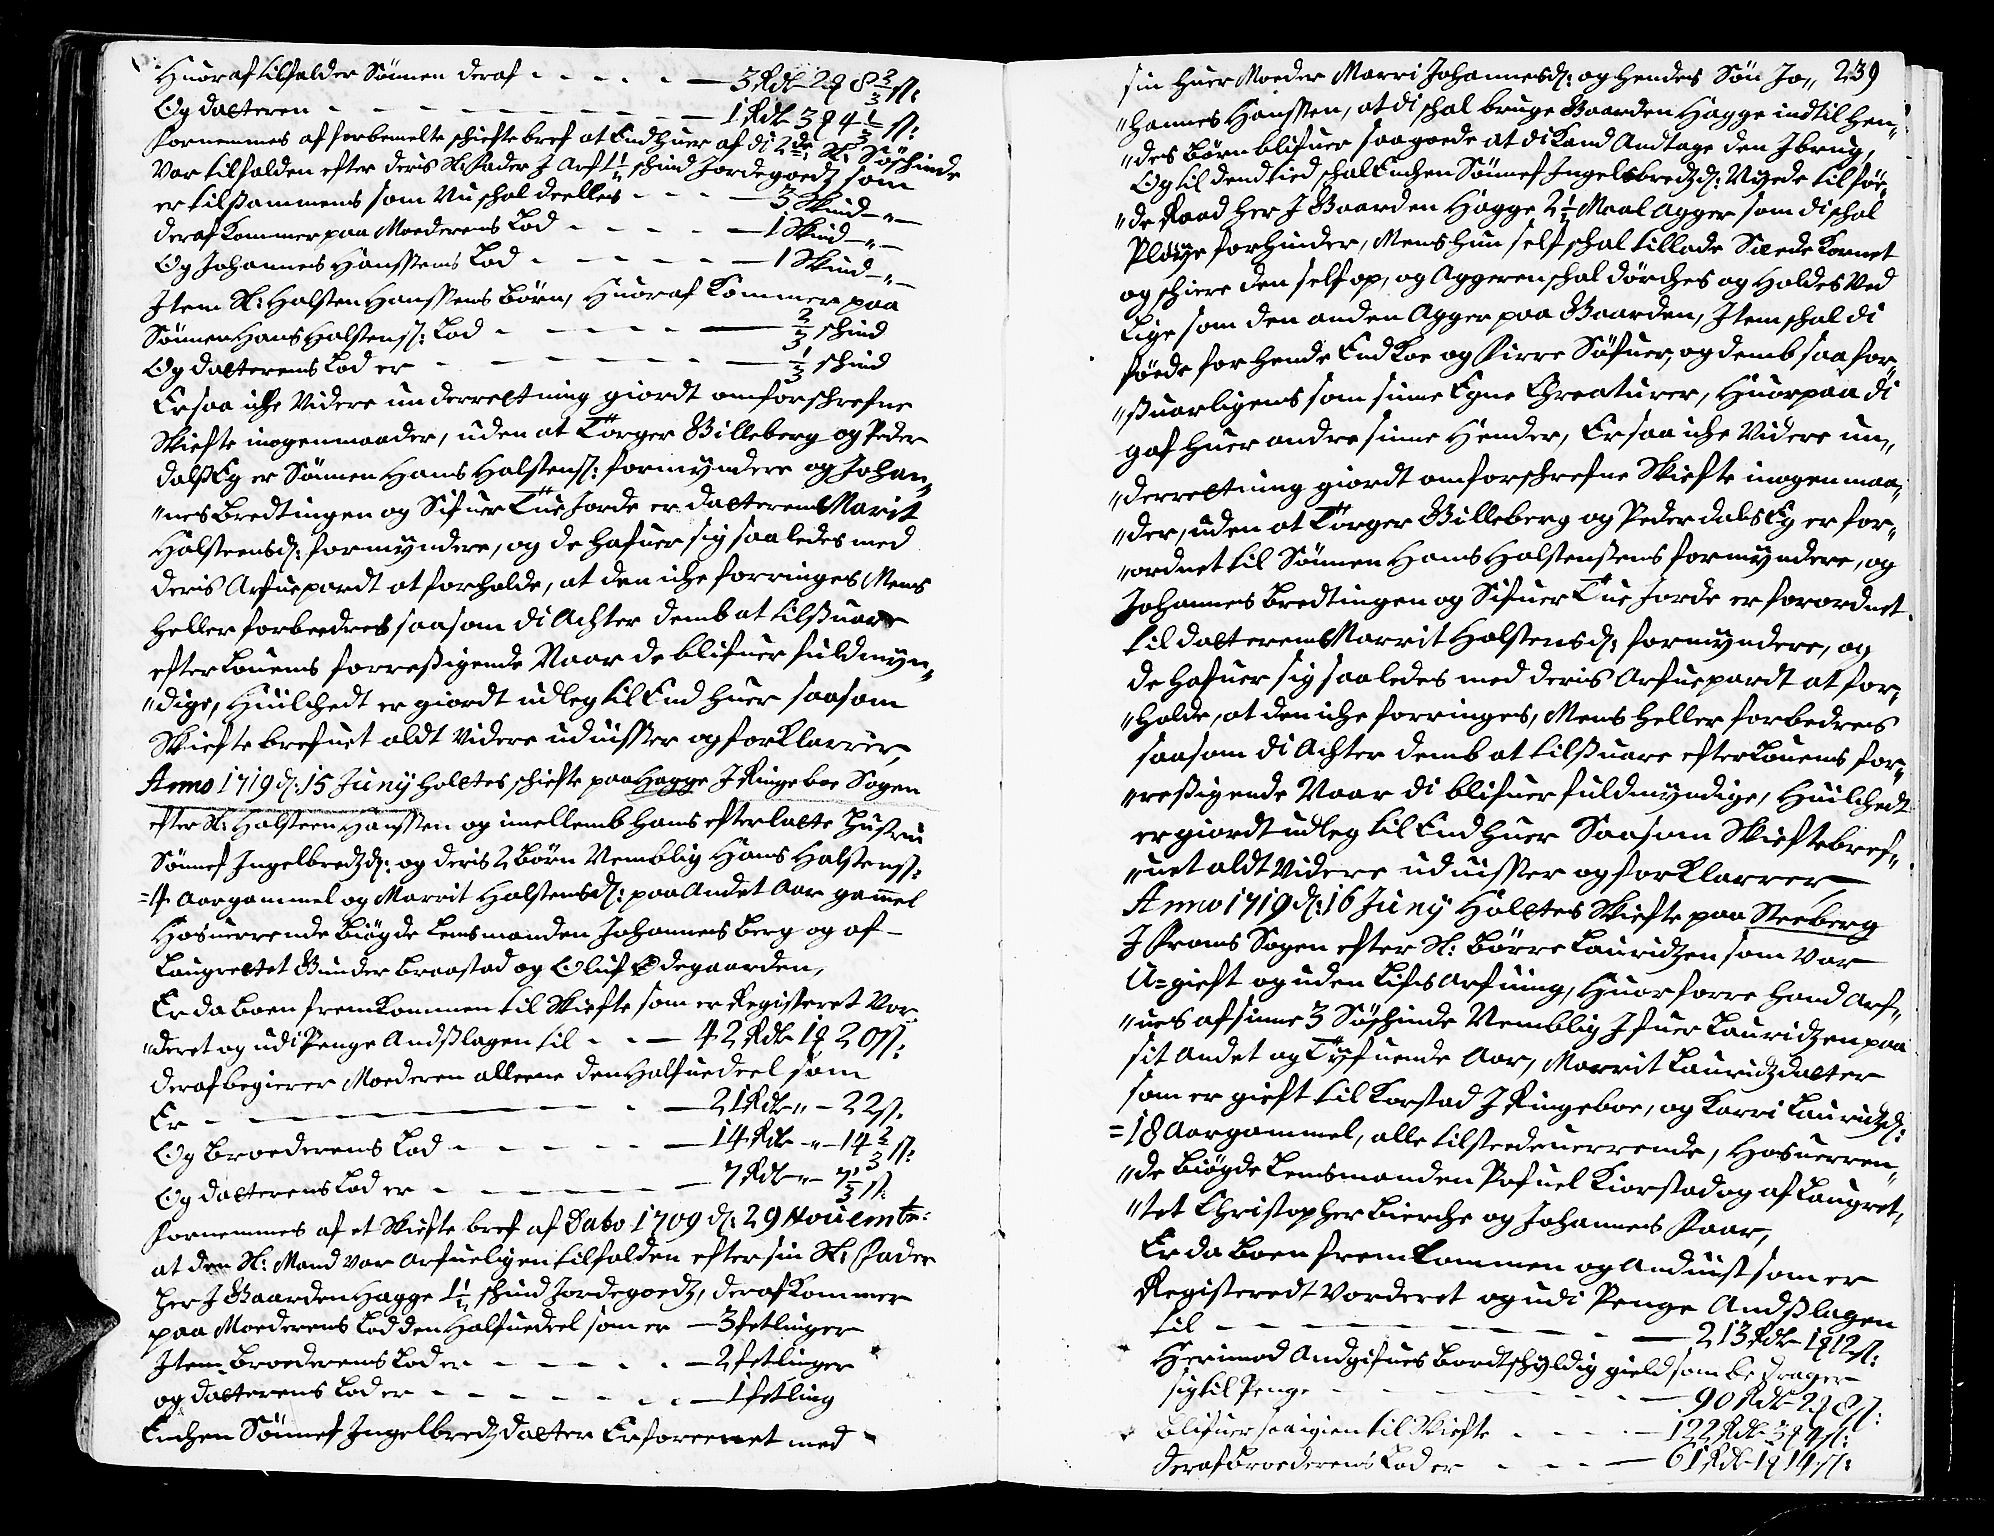 Huoraf tilfalder Sønnen deraf - - - - - 3 Rdlr 2 q 8 2/3 ss:
Og datteren - - - - - - - - 1 Rdlr 3 q 4 1/3 ss:
Fornemmes af forbemelte schiftebref at End huer af di 2de Sl: Søschinde
Var tilfalden efter deris Sl: Fader J Arf 1 1/2 schind Jordegoedz som
er tilsammens som Nu schal deelles - - - 3 Skind - " -
deraf Kommer paa Moederens Lod - - - - - 1 Skind - " -
Og Johannes Hanssens Lod - - - - - 1 Skind - " -
Item Sl: Halsten Hanssens Børn, Huoraf Kommer paa
Sønnen Hans Halstenss: Lod - - - - 2/3 schind
Og datterens Lod er - - - - - - 1/3 schind
Er saa iche Videre underrettning giordt om forschrefne
Skiefte i nogen maader, uden at Törger Billeberg og Peder
dals Eg er Sønnen Hans Halstenss: formyndere og Johan„
„nes Bredtingen og Sifuer Tüe Jorde er datteren Marit
Halsteensd: formyndere, og de hafuer sig saaledes med
deris Arfuepardt at forholde, at den iche forringes Mens
heller forbeedres saasom di Achter demb at tilsuare
efter Louens forresigende Naar de blifuer fuldmyn„
„dige, Huilchedt er giordt udleg til End huer saasom
Skiefte brefuet aldt Videre uduisser og forklarrer,
Anno 1719 d: 15 Juny holtes schiefte paa Hagge J Ringeboe Sogen
efter Sl: Halsteen Hanssen og imellemb hans efterlatte Hustrue
Sønnef Ingelbredzd: og deris 2 Børn Nemblig Hans Halstenss:
=4 Aargammel og Marrit Halstensd: paa Andet Aar gam̅el
Hosuerrende Biøgde Lensmanden Johannes Berg og af -
Laugrettet Gunder Braastad og Oluf Ødegaarden,
Er da Boen fremkommen til Skiefte som er Registeret Vor„
„deret og udi Penge Andslagen til - - - 42 Rdlr 1 q 20 ss:
deraf begierer Moederen alleene den Halfuedeel som
Er - - - - - - 21 Rdlr " - 22 ss:
Og Broederens Lod - - - - - 14 Rdlr - " - 14 2/3 ss:
Og datterens Lod er - - - - - 7 Rdlr - " - 7 1/3 ss:
Fornemmes af et Skiefte bref af Dato 1709 d: 29 Nouembr:
at den Sl: Mand var Arfueligen tilfalden efter sin Sl: Fader
her J Gaarden Hagge 1 1/2 schind Jordegoedz, deraf Kommer
paa Moederens Lod den Halfuedeel som er - 3 fetlinger
Item Broederens Lod er - - - - - 2 fetlinger
og datterens Lod er - - - - - - 1 fetling
Enchen Sønnef Ingelbredzdatter Er foreenet med -
239
sin Huer Moeder Marri Johannesd: og hendes Søn Jo„
„hannes Hanssen, at di schal bruge Gaarden Hagge indtil hen„
„des Børn blifuer saa goede at di Kand Andtage den J brug,
Og til dend tied schal Enchen Sønnef Ingelbredzd: Nyede til föe„
„de Raad her J Gaarden Hagge 2 1/2 Maal Agger som di schal
Pløye for hinder, Mens hun self schal tillade Saede Kornet
og schiere den self op, og Aggeren schal dørches og Holdes Ved
Lige som den anden Agger paa Gaarden, Item schal di
föede for hende End Koe og Firre Söfuer, og demb saa for„
„suarligens som sinne Egne Chreaturer, Huorpaa di
gaf huer andre sinne Hender, Er saa iche Videre un„
„derrettning giordt om forschrefne Skiefte i nogen maa„
„der, uden at Törger Billeberg og Peder dals Eg er for„
„ordnet til Sønnen Hans Halstensens formyndere, og
Johannes Bredtingen og Sifuer Tüe Jorde er forordnet
til datteren Marrit Halstensd: formyndere, og
de hafuer sig saaledes med deris Arfuepardt at for„
„holde, at den iche forringes, Mens heller forbedres
saasom di Achter demb at tilsuare efter Louens for„
„resigende Naar di blifuer fuldmyndige, Huilchedt
er giordt udleg til End huer Saasom Skieftebref„
„uet aldt Videre uduisser og forklarrer,
Anno 1719 d: 16 Juny Holtes Skiefte paa Steeberg
J Froens Sogen efter Sl: Börre Lauridzen som Var
U=gieft og uden Lifs Arfuing, Huorforre hand Arf„
„ues af sinne 3 Søschinde Nemblig Ifuer Lauridzen paa
sit Andet og Tyfuende Aar, Marrit Lauridzdatter
som er gieft til Korstad J Ringeboe, og Karri Lauridzd:
=18 Aargammel, alle tilsteedeuerrende, Hosuerren„
„de Biøgde Lensmanden Pofuel Kiorstad og af Laugret„
„tet Christopher Bierche og Johannes Faar,
Er da Boen fremkommen og Anduist som er
Registeredt Vorderet og udi Penge Andslagen
til - - - - - - - - 213 Rdlr 1 q 12 ss:
Herimod Andgifues Bordtschyldig gield som bedrager
sig til Penge - - - - - - 90 Rdlr 2 q 8 ss:
Blifuer saa igien til Skifte - - - - 122 Rdlr 3 q 4 ss:
deraf Broederens Lod er - - - - 61 Rdlr 1 q 14 ss: